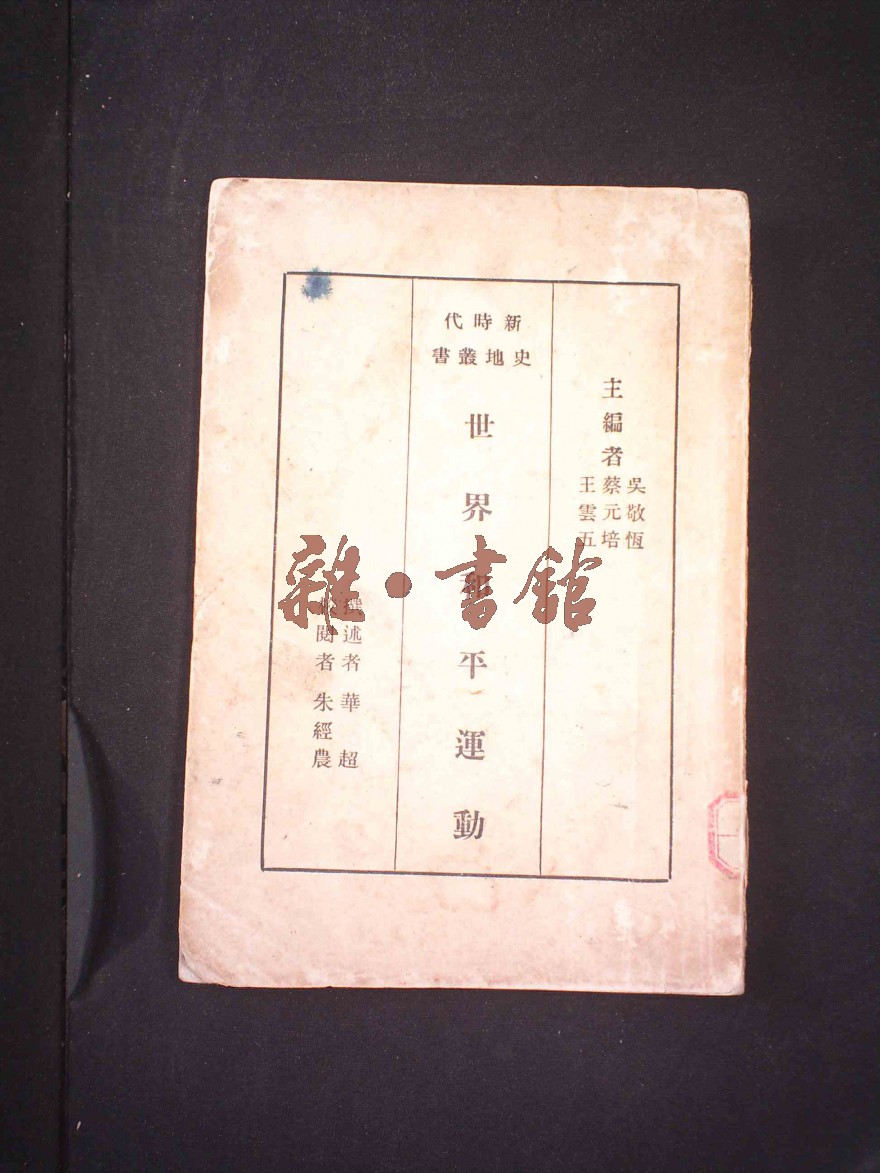 主編者
吳敬恆
蔡元培
王雲五
新時代
史地叢書
世界和平運動
撰述者 華超
閱者 朱經農
雜·書館